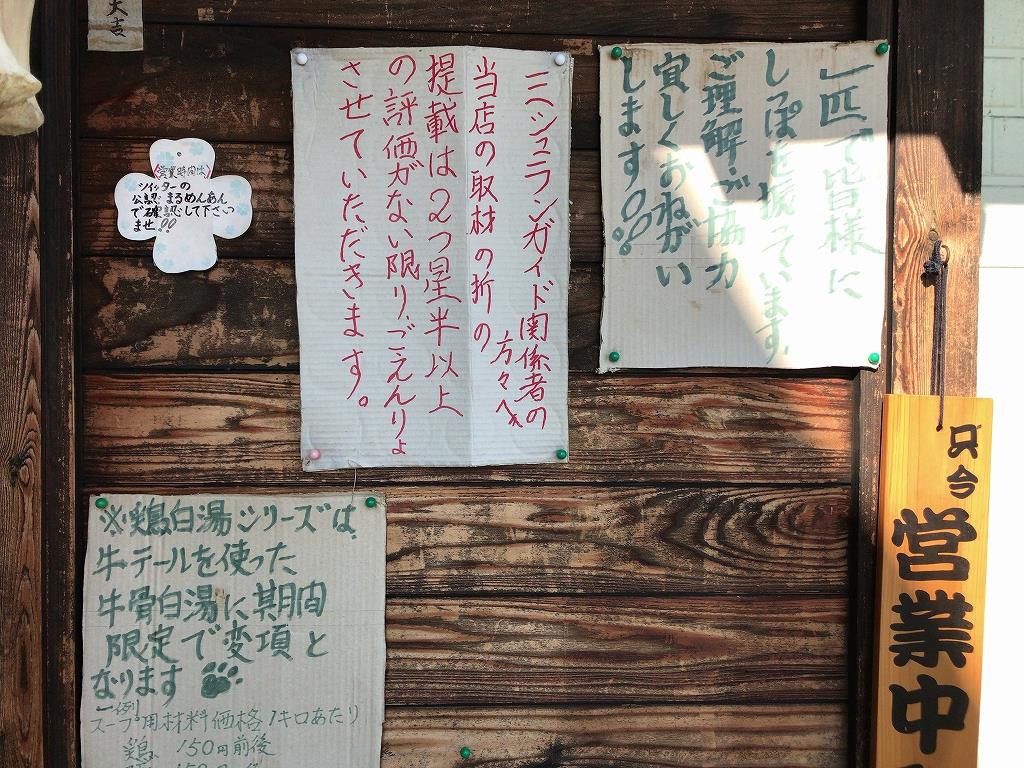 大吉
一匹で皆様に
しっぽを振っています。
ご理解・ご協力
宜しくおねがい
します!!
ミシュランガイド関係者の
方々へ
当店の取材の折の
提載は2つ星半以上
の評価がない限り、ごえんりょ
させていただきます。
(営業時間は)
ツイッターの
公認 まるめんあん
で確認して下さい
ませ!!
※鶏白湯シリーズは、
牛テールを使った
牛骨白湯に期間
限定で変項と
なります
一例
スープ用材料価格1キロあたり
鶏 150円前後
只今
営業中